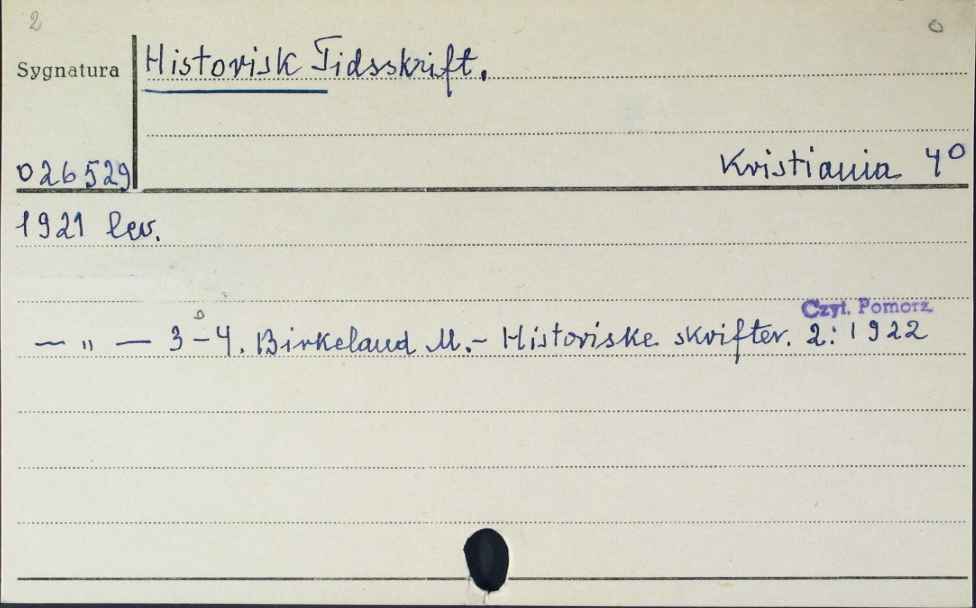 2 0
Sygnatura Historisk Tidsskrift.
026529 Kristiania 4°
1921 lev.
Czyt. Pomorz.
— " — 3-4. Birkeland M.- Historiske skrifter. 2: 1922